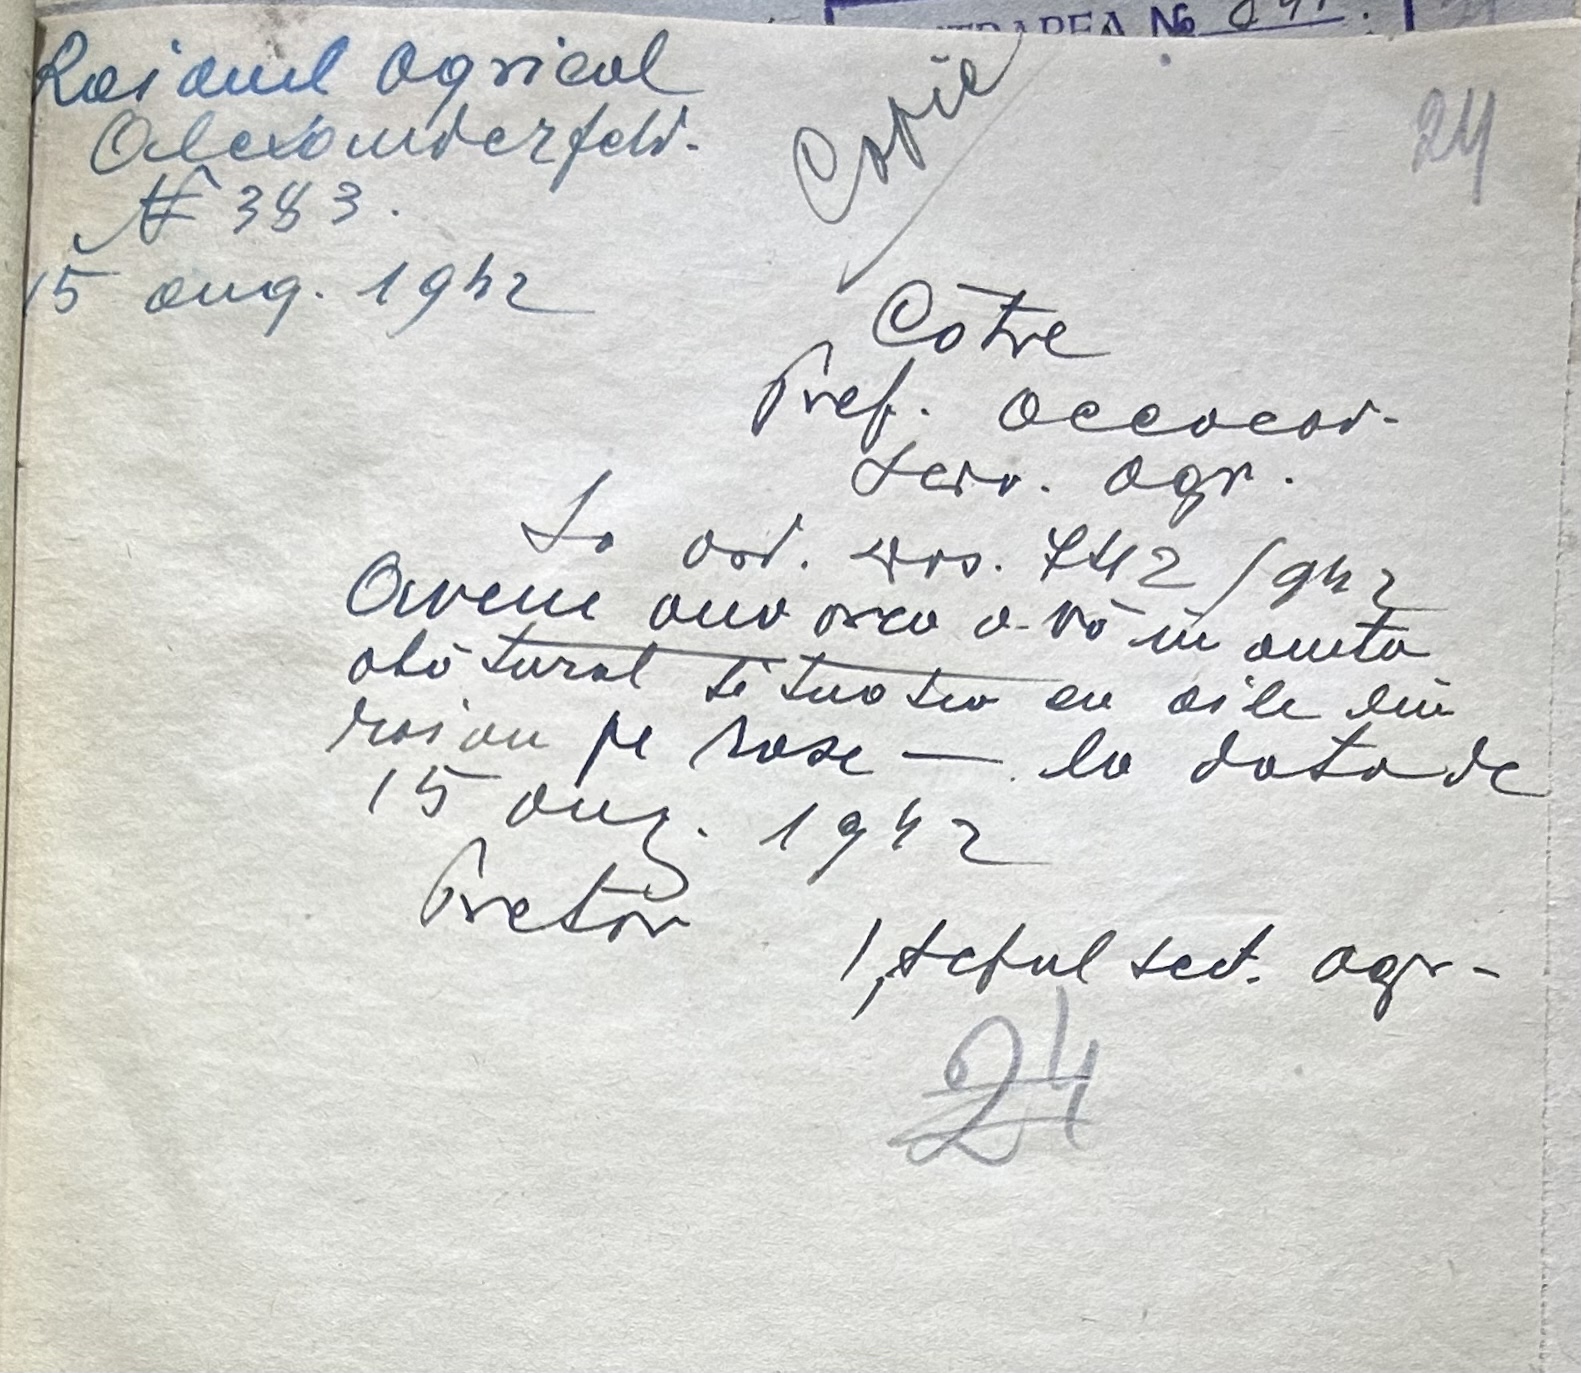 TRAREA №
Raionul Agricol
Alexanderfeld.
№ 383.
15 aug. 1942
Copie
24
Către
Pref. 
Serv. Agr.
La ord. Dvs. 7412/942
Avem onorea a vă înainta
alăturat situația cu oile din
raion pe rase — la data de
15 aug. 1942
Pretor
Șeful sect. agr-
24